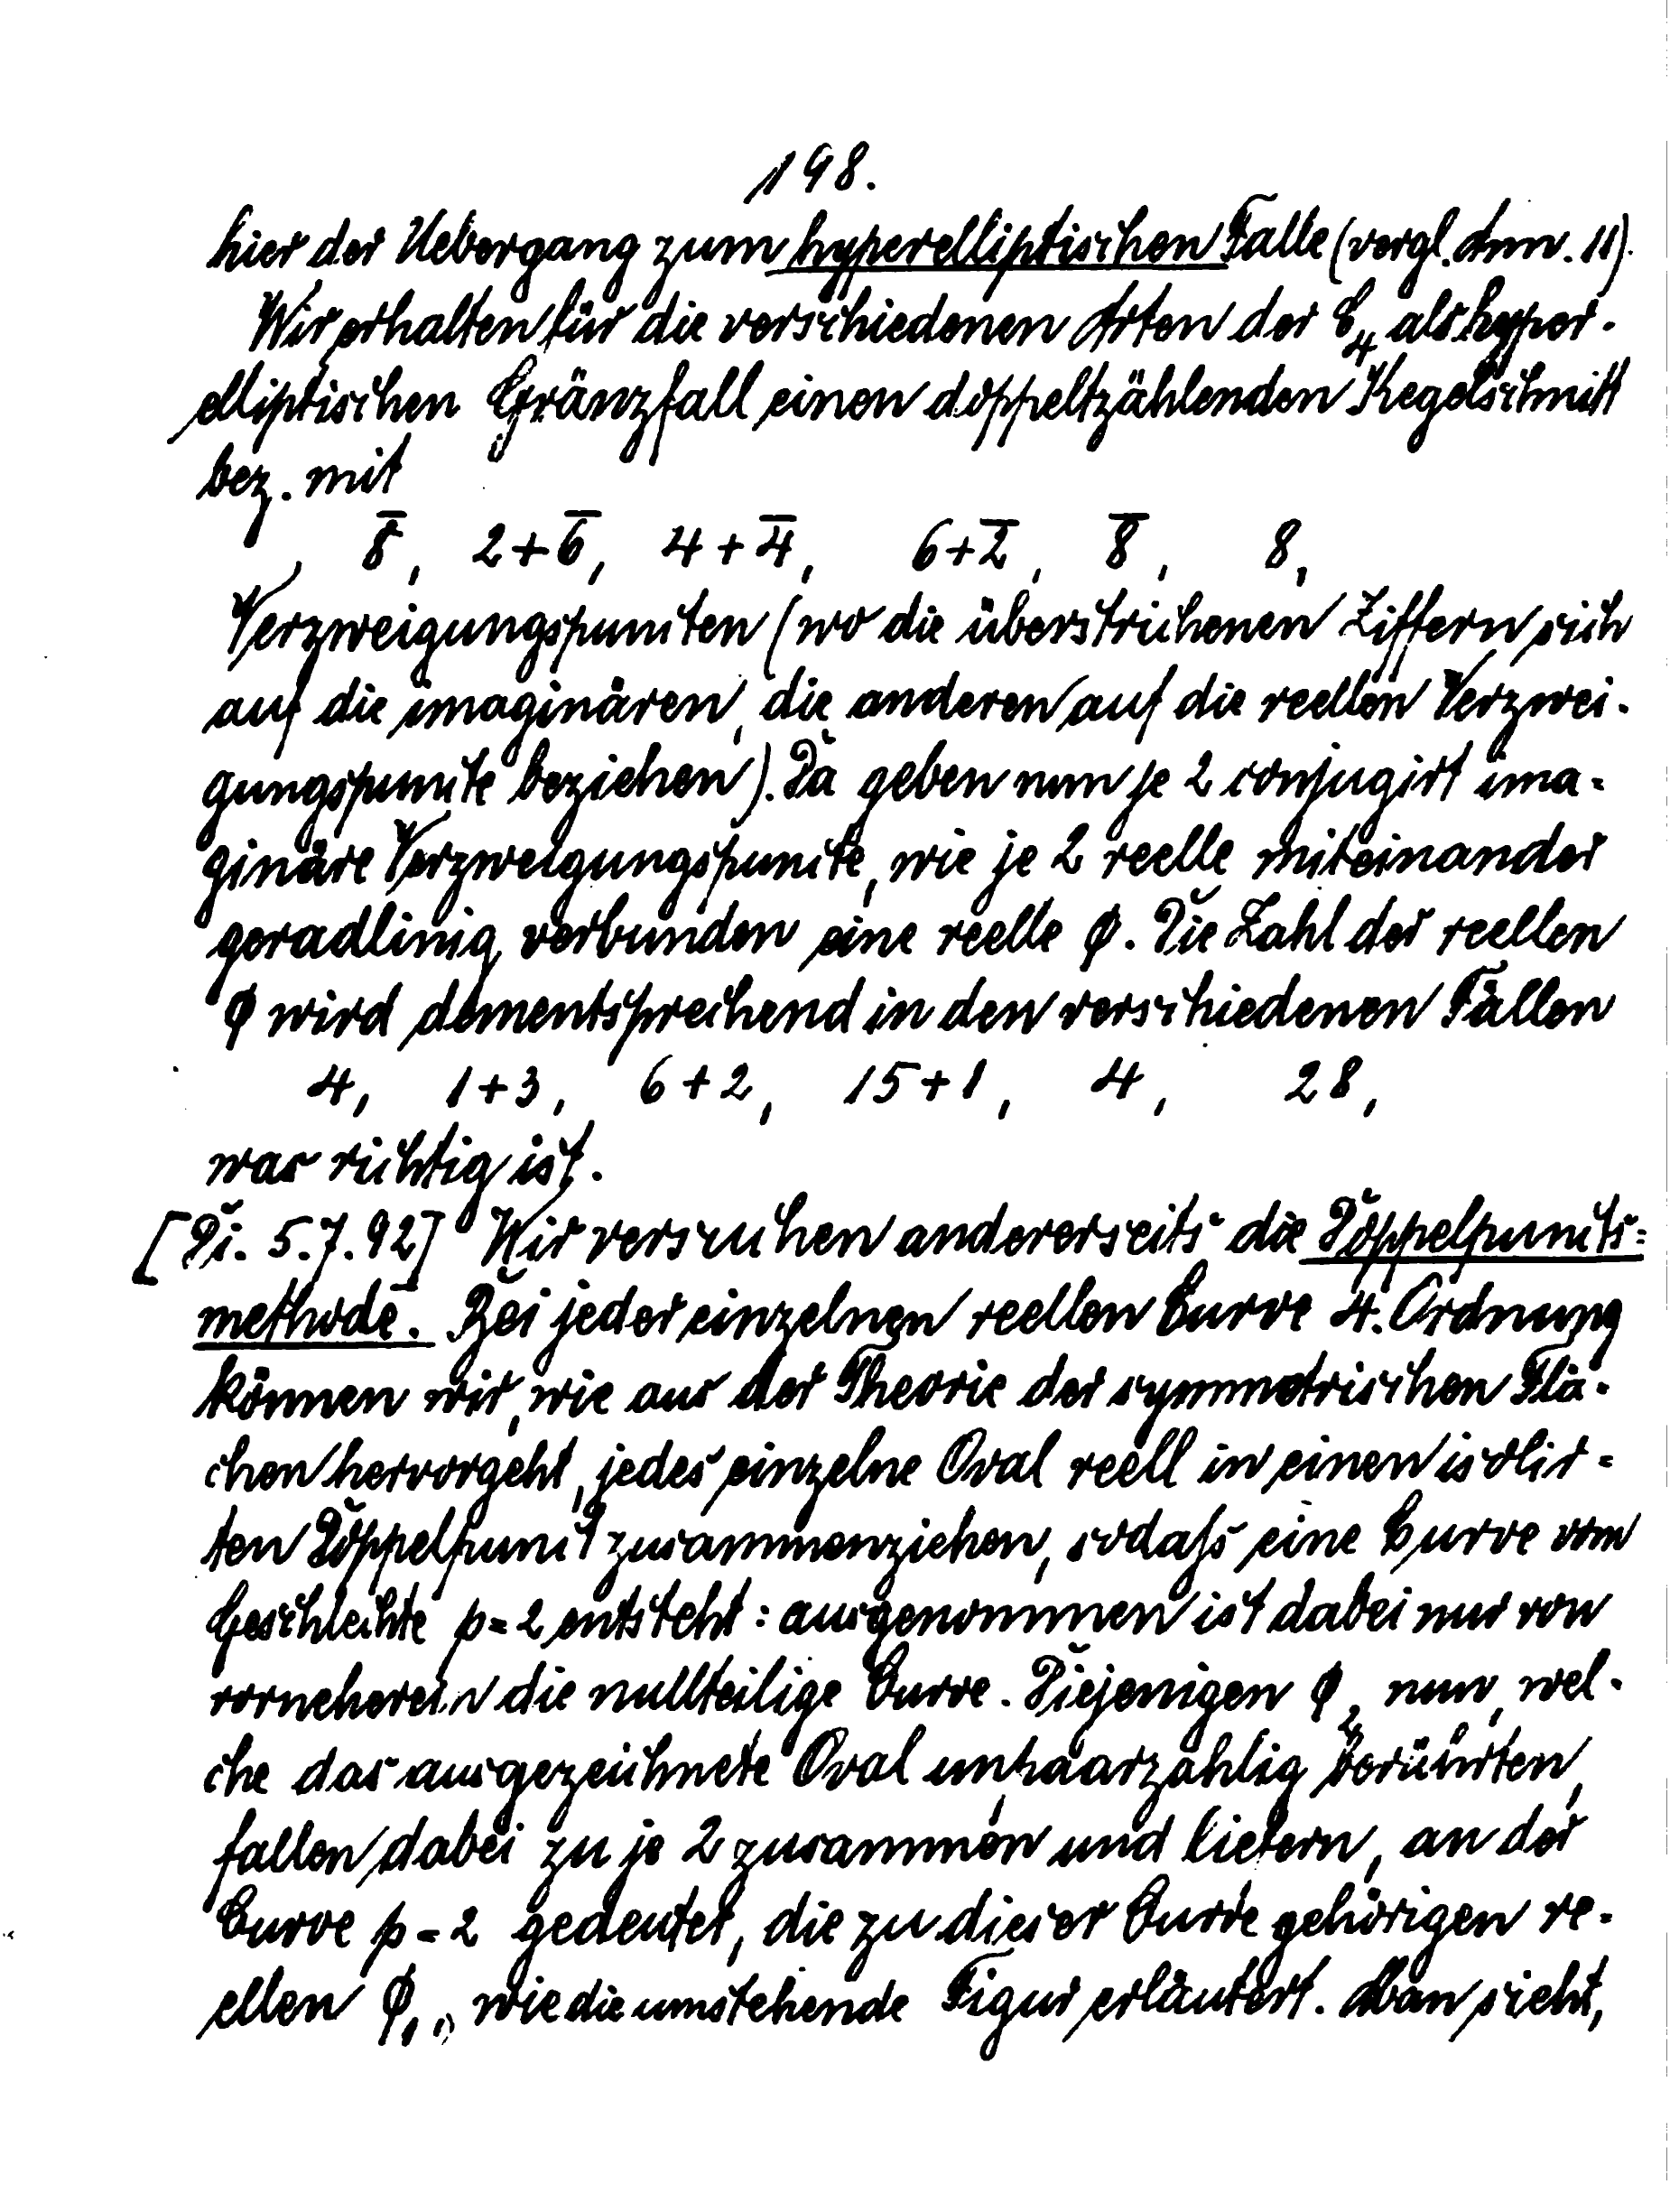 198.
hier der Uebergang zum hyperelliptischen Falle (vergl. Anm. 11).
Wir erhalten für die verschiedenen Arten der C₄ als hyper-
elliptischen Gränzfall einen doppeltzählenden Kegelschnitt
bez. mit
8̅, 2+6̅, 4+4̅, 6+2̅, 8̅, 8,
Verzweigungspuncten (wo die überstrichenen Ziffern sich
auf die imaginären, die anderen auf die reellen Verzwei-
gungspuncte beziehen). Da geben nun je 2 conjugirt ima-
ginäre Verzweigungspuncte, wie je 2 reelle miteinander
geradlinig verbunden eine reelle φ. Die Zahl der reellen
φ wird dementsprechend in den verschiedenen Fällen
4, 1+3, 6+2, 15+1, 4, 28,
was richtig ist.
[Di. 5.7.92] Wir versuchen andererseits die Doppelpuncts=
methode. Bei jeder einzelnen reellen Curve 4. Ordnung
können wir, wie aus der Theorie der symmetrischen Flä-
chen hervorgeht, jedes einzelne Oval reell in einen isolir=
ten Doppelpunct zusammenziehen, sodaſs eine Curve vom
Geschlechte p=2 entsteht: ausgenommen ist dabei nur von
vorneherein die nullteilige Curve. Diejenigen φ₂ nun, wel-
che das ausgezeichnete Oval unpaarzahlig berührten,
fallen dabei zu je 2 zusammen und liefern, an der
Curve p=2 gedeutet, die zu dieser Curve gehörigen re-
ellen φ, wie die umstehende Figur erläutert. Man sieht,